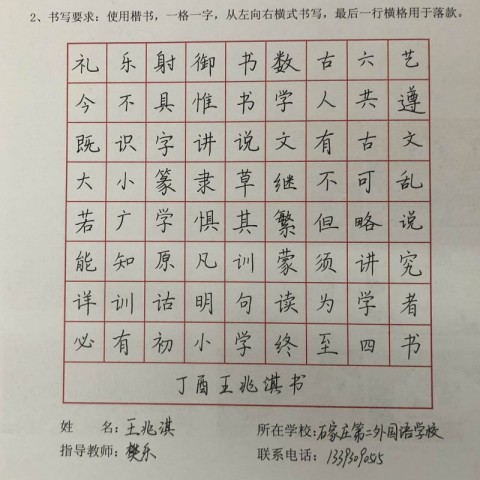 2、书写要求：使用楷书，一格一字，从左向右横式书写，最后一行横格用于落款。
礼乐射御书数古六艺
今不具惟书学人共遵
既识字讲说文有古文
大小篆隶草继不可乱
若广学惧其繁但略说
能知原凡训蒙须讲究
详训诂明句读为学者
必有初小学终至四书
丁酉王兆淇书
姓 名：王兆淇 所在学校：石家庄第二外国语学校
指导教师：樊乐 联系电话：13393090515